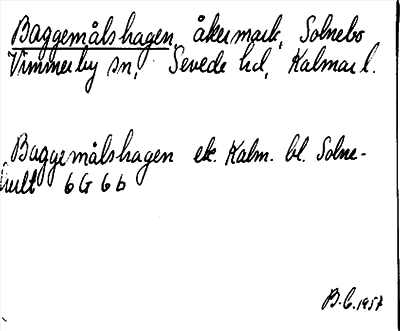 Baggemålshagen, åkermark, Solnebo
Vimmerby sn, Sevede hd, Kalmar l.
Baggemålshagen ek. Kalm. bl. Solne-
hult 6 G 6 b
B.C. 1957